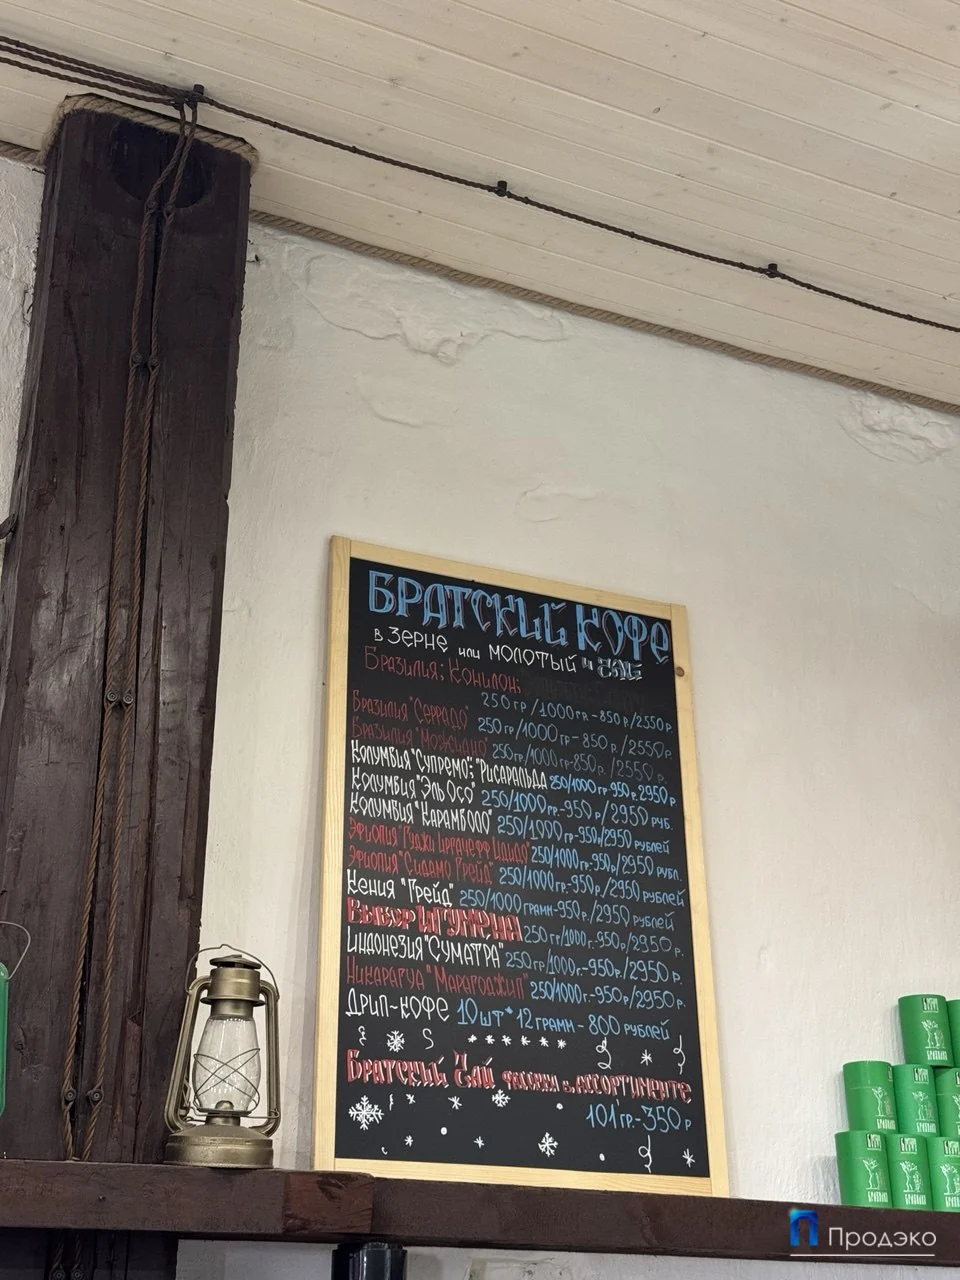 БРАТСКИЙ КОФЕ
в ЗЕРНЕ или МОЛОТЫЙ и ЧАЙ
Бразилия; Конилон;
250 гр /1000 гр - 850 р./2550 р.
Бразилия "Серрадо" 250 гр/1000 гр - 850 р./2550 р.
Бразилия "Можиано" 250гр/1000 гр - 850 р. /2550 р.
Колумбия "Супремо"; "Рисаральда 250/1000 гр - 950 р. 2950 р.
Колумбия "Эль Осо" 250/1000 гр. - 950 р/2950 руб.
Колумбия "Карамболо" 250/1000 гр - 950р/2950 рублей
Эфиопия "Гуджи 250/1000 гр. - 950р./2950 рубл.
Эфиопия "Сидамо Грейд" 250/1000 гр. - 950р./2950 рублей
Кения "Грейд" 250/1000 грамм - 950р./2950 рублей
Выбор Игумена 250 гр/1000г. - 950р./2950р.
Индонезия "СУМАТРА" 250 гр/1000г. - 950р./2950р.
Никарагуа "Марагоджип" 250гр/1000г - 950р/2950р.
Дрип-кофе 10шт * 12 грамм - 800 рублей
Братский Чай фасовки в ассортименте
101 гр. - 350 р
Продэко